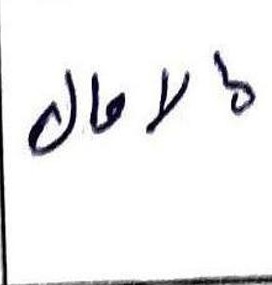 لا مال